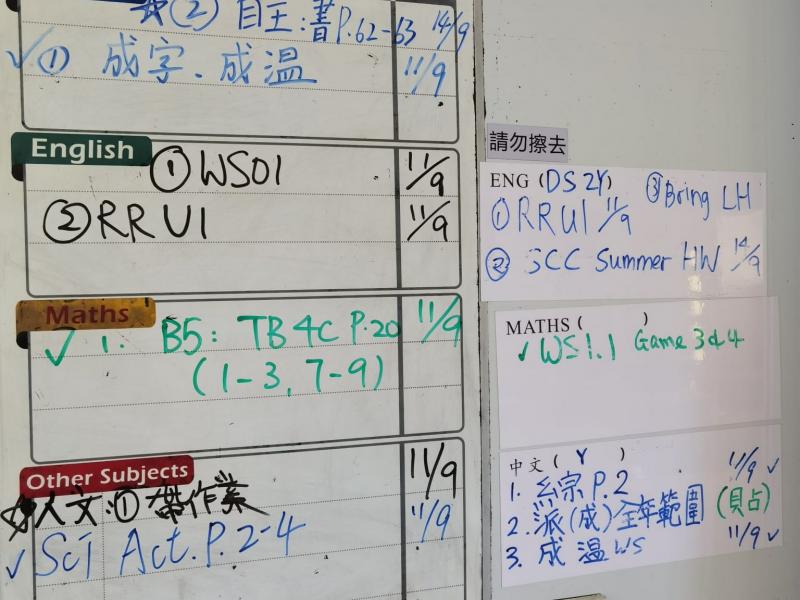 ② 自王:書P.62-63 14/9
✓① 成字.成温 11/9
English
① WS01 11/9
② RRU1 11/9
Maths
✓ 1. B5: TB 4C P.20 11/9
(1-3, 7-9)
Other Subjects 11/9
人文:① 帶作業
✓ Sci Act. P. 2-4 11/9
請勿擦去
ENG (DS 2Y) ③Bring LH
① RRU1 11/9
② SCC Summer HW 14/9
MATHS ( )
✓ WS1.1 Game 3&4
中文 ( Y )
1. 綜P.2 11/9 ✓
2. 派(成)全年範圍(貼)
3. 成温WS 11/9 ✓